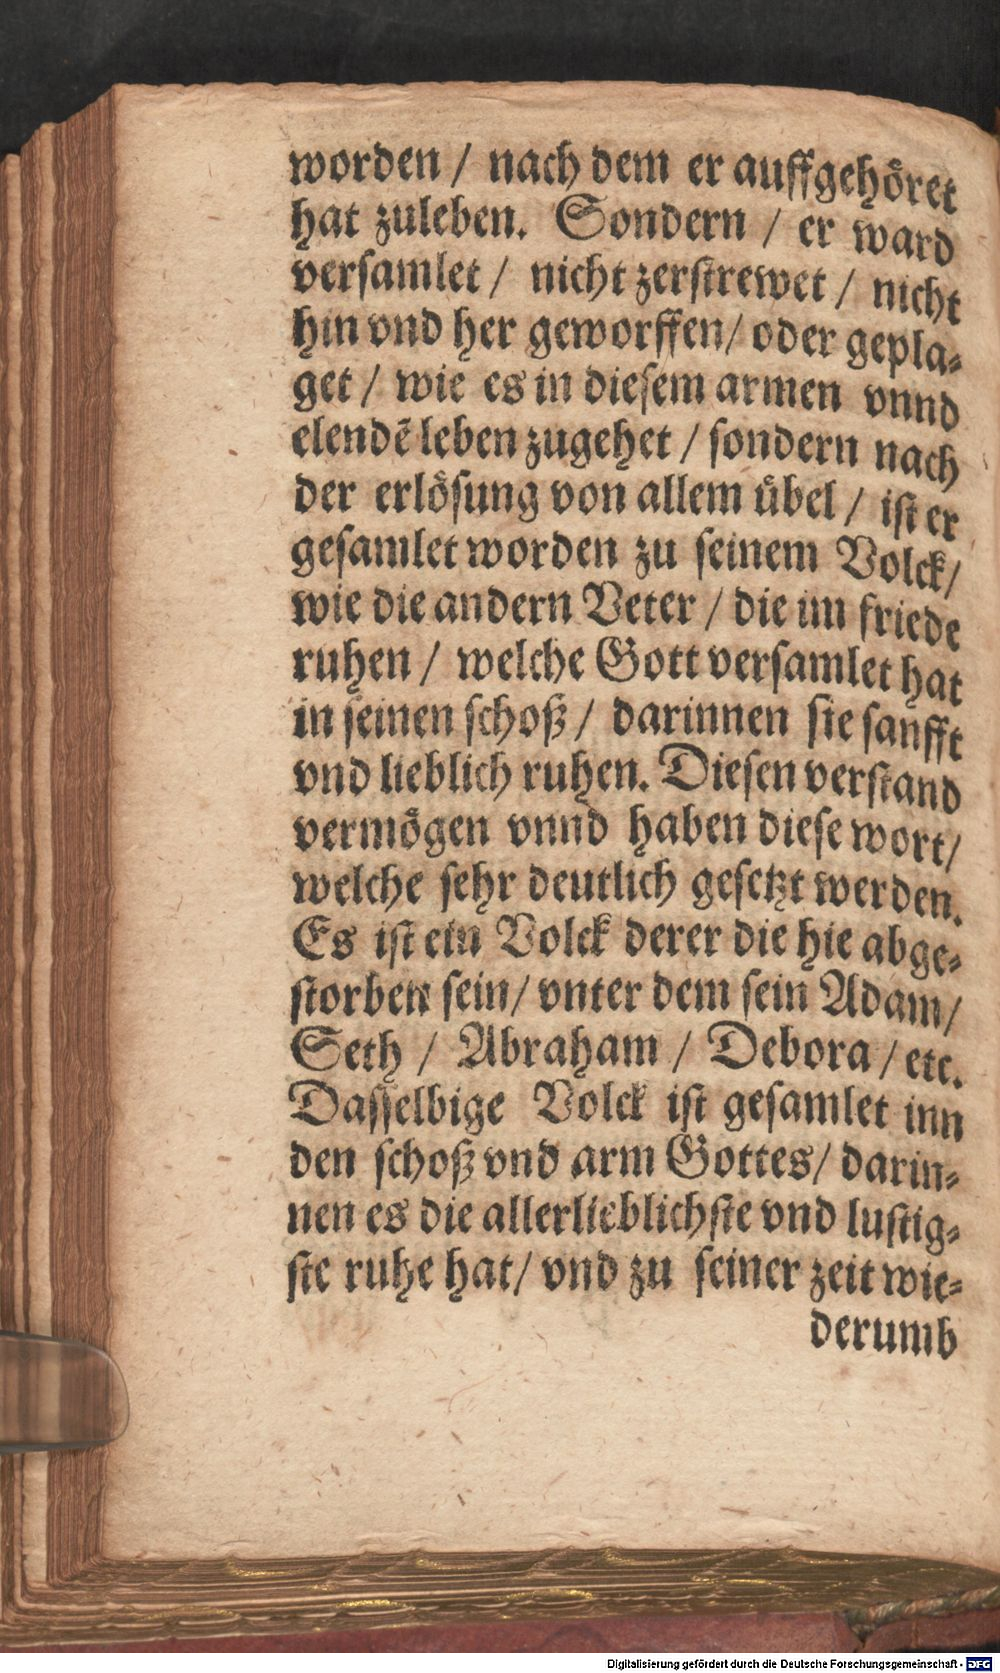 worden / nach dem er auffgehöret
hat zuleben. Sondern / er ward
versamlet / nicht zerstrewet / nicht
hin vnd her geworffen / oder gepla-
get / wie es in diesem armen vnnd
elendẽ leben zugehet / sondern nach
der erlösung von allem übel / ist er
gesamlet worden zu seinem Volck /
wie die andern Veter / die im friede
ruhen / welche Gott versamlet hat
in seinen schoß / darinnen sie sanfft
vnd lieblich ruhen. Diesen verstand
vermögen vnnd haben diese wort /
welche sehr deutlich gesetzt werden.
Es ist ein Volck derer die hie abge-
storben sein / vnter dem sein Adam /
Seth / Abraham / Debora / etc.
Dasselbige Volck ist gesamlet inn
den schoß vnd arm Gottes / darin-
nen es die allerlieblichste vnd lustig-
ste ruhe hat / vnd zu seiner zeit wie-
derumb
Digitalisierung gefördert durch die Deutsche Forschungsgemeinschaft - DFG